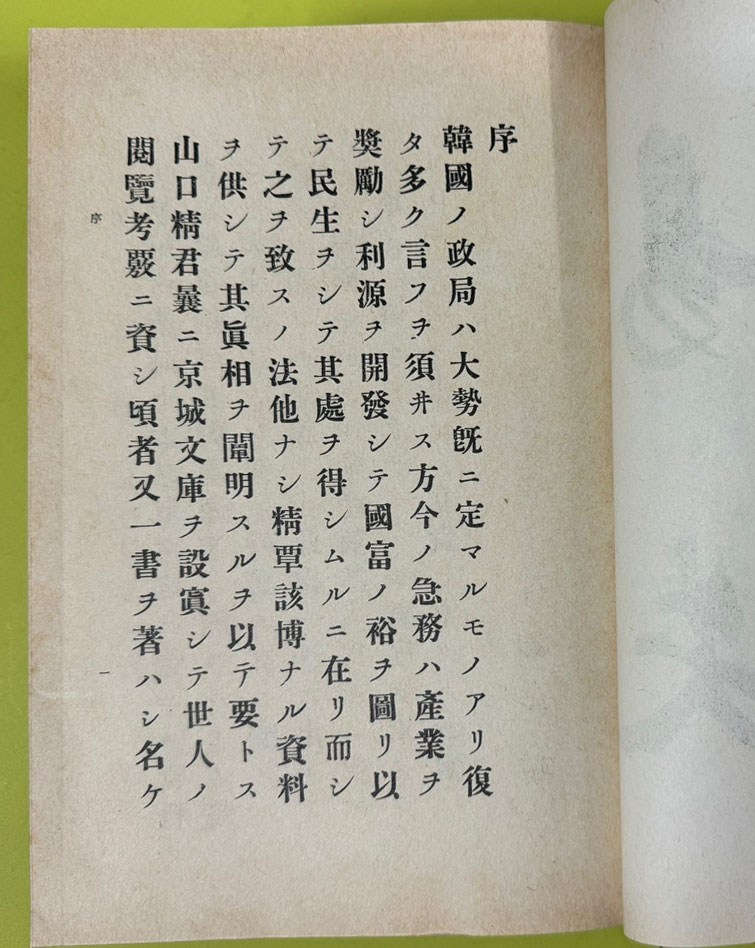 序
韓國ノ政局ハ大勢既ニ定マルモノアリ復
タ多ク言フヲ須井ス方今ノ急務ハ產業ヲ
奬勵シ利源ヲ開發シテ國富ノ裕ヲ圖リ以
テ民生ヲシテ其處ヲ得シムルニ在リ而シ
テ之ヲ致スノ法他ナシ精覃該博ナル資料
ヲ供シテ其眞相ヲ闡明スルヲ以テ要トス
山口精君曩ニ京城文庫ヲ設寘シテ世人ノ
閱覽考覈ニ資シ頃者又一書ヲ著ハシ名ケ
序
一